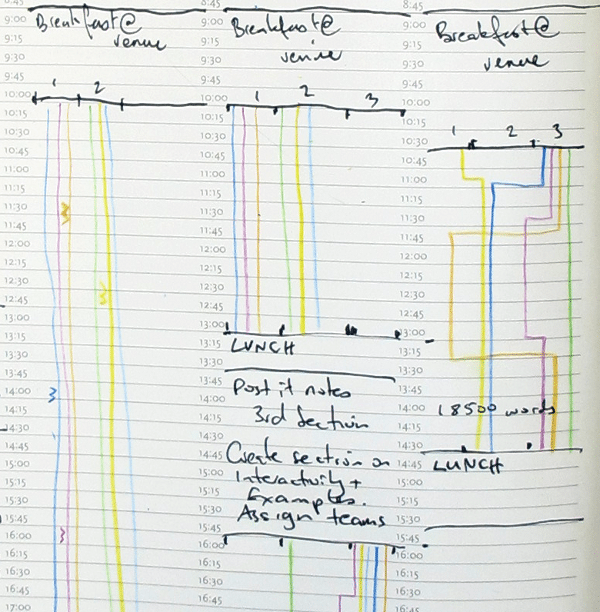 8:45
9:00
9:15
9:30
9:45
10:00
10:15
10:30
10:45
11:00
11:15
11:30
11:45
12:00
12:15
12:30
12:45
13:00
13:15
13:30
13:45
14:00
14:15
14:30
14:45
15:00
15:15
15:30
15:45
16:00
16:15
16:30
16:45
17:00
Breakfast@
venue
1 2
8:45
9:00
9:15
9:30
9:45
10:00
10:15
10:30
10:45
11:00
11:15
11:30
11:45
12:00
12:15
12:30
12:45
13:00
13:15
13:30
13:45
14:00
14:15
14:30
14:45
15:00
15:15
15:30
15:45
16:00
16:15
16:30
16:45
Breakfast@
venue
1 2 3
LUNCH
Post it notes
3rd Section
Create section on
Interactivity +
Examples.
Assign teams
8:45
9:00
9:15
9:30
9:45
10:00
10:15
10:30
10:45
11:00
11:15
11:30
11:45
12:00
12:15
12:30
12:45
13:00
13:15
13:30
13:45
14:00
14:15
14:30
14:45
15:00
15:15
15:30
15:45
16:00
16:15
16:30
16:45
Breakfast@
venue
1 2 3
18500 words
LUNCH